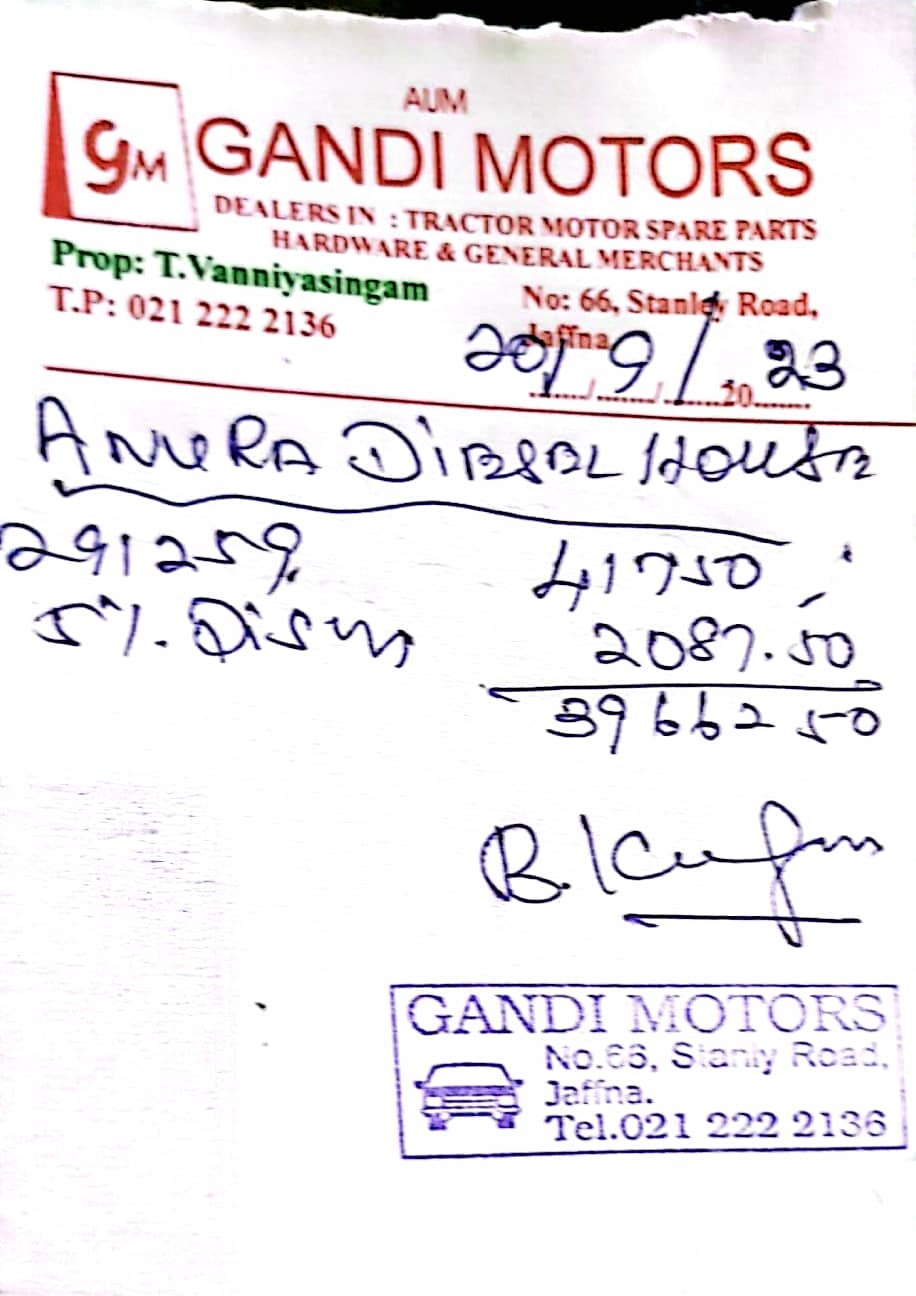 AUM
GM GANDI MOTORS
DEALERS IN : TRACTOR MOTOR SPARE PARTS
HARDWARE & GENERAL MERCHANTS
Prop: T.Vanniyasingam
T.P: 021 222 2136
No: 66, Stanley Road,
Jaffna.
20/9/2023
ANURA DIESEL HOUSE
291259 41750
5%. 2087.50
39662 50
GANDI MOTORS
No.66, Stanly Road,
Jaffna.
Tel.021 222 2136